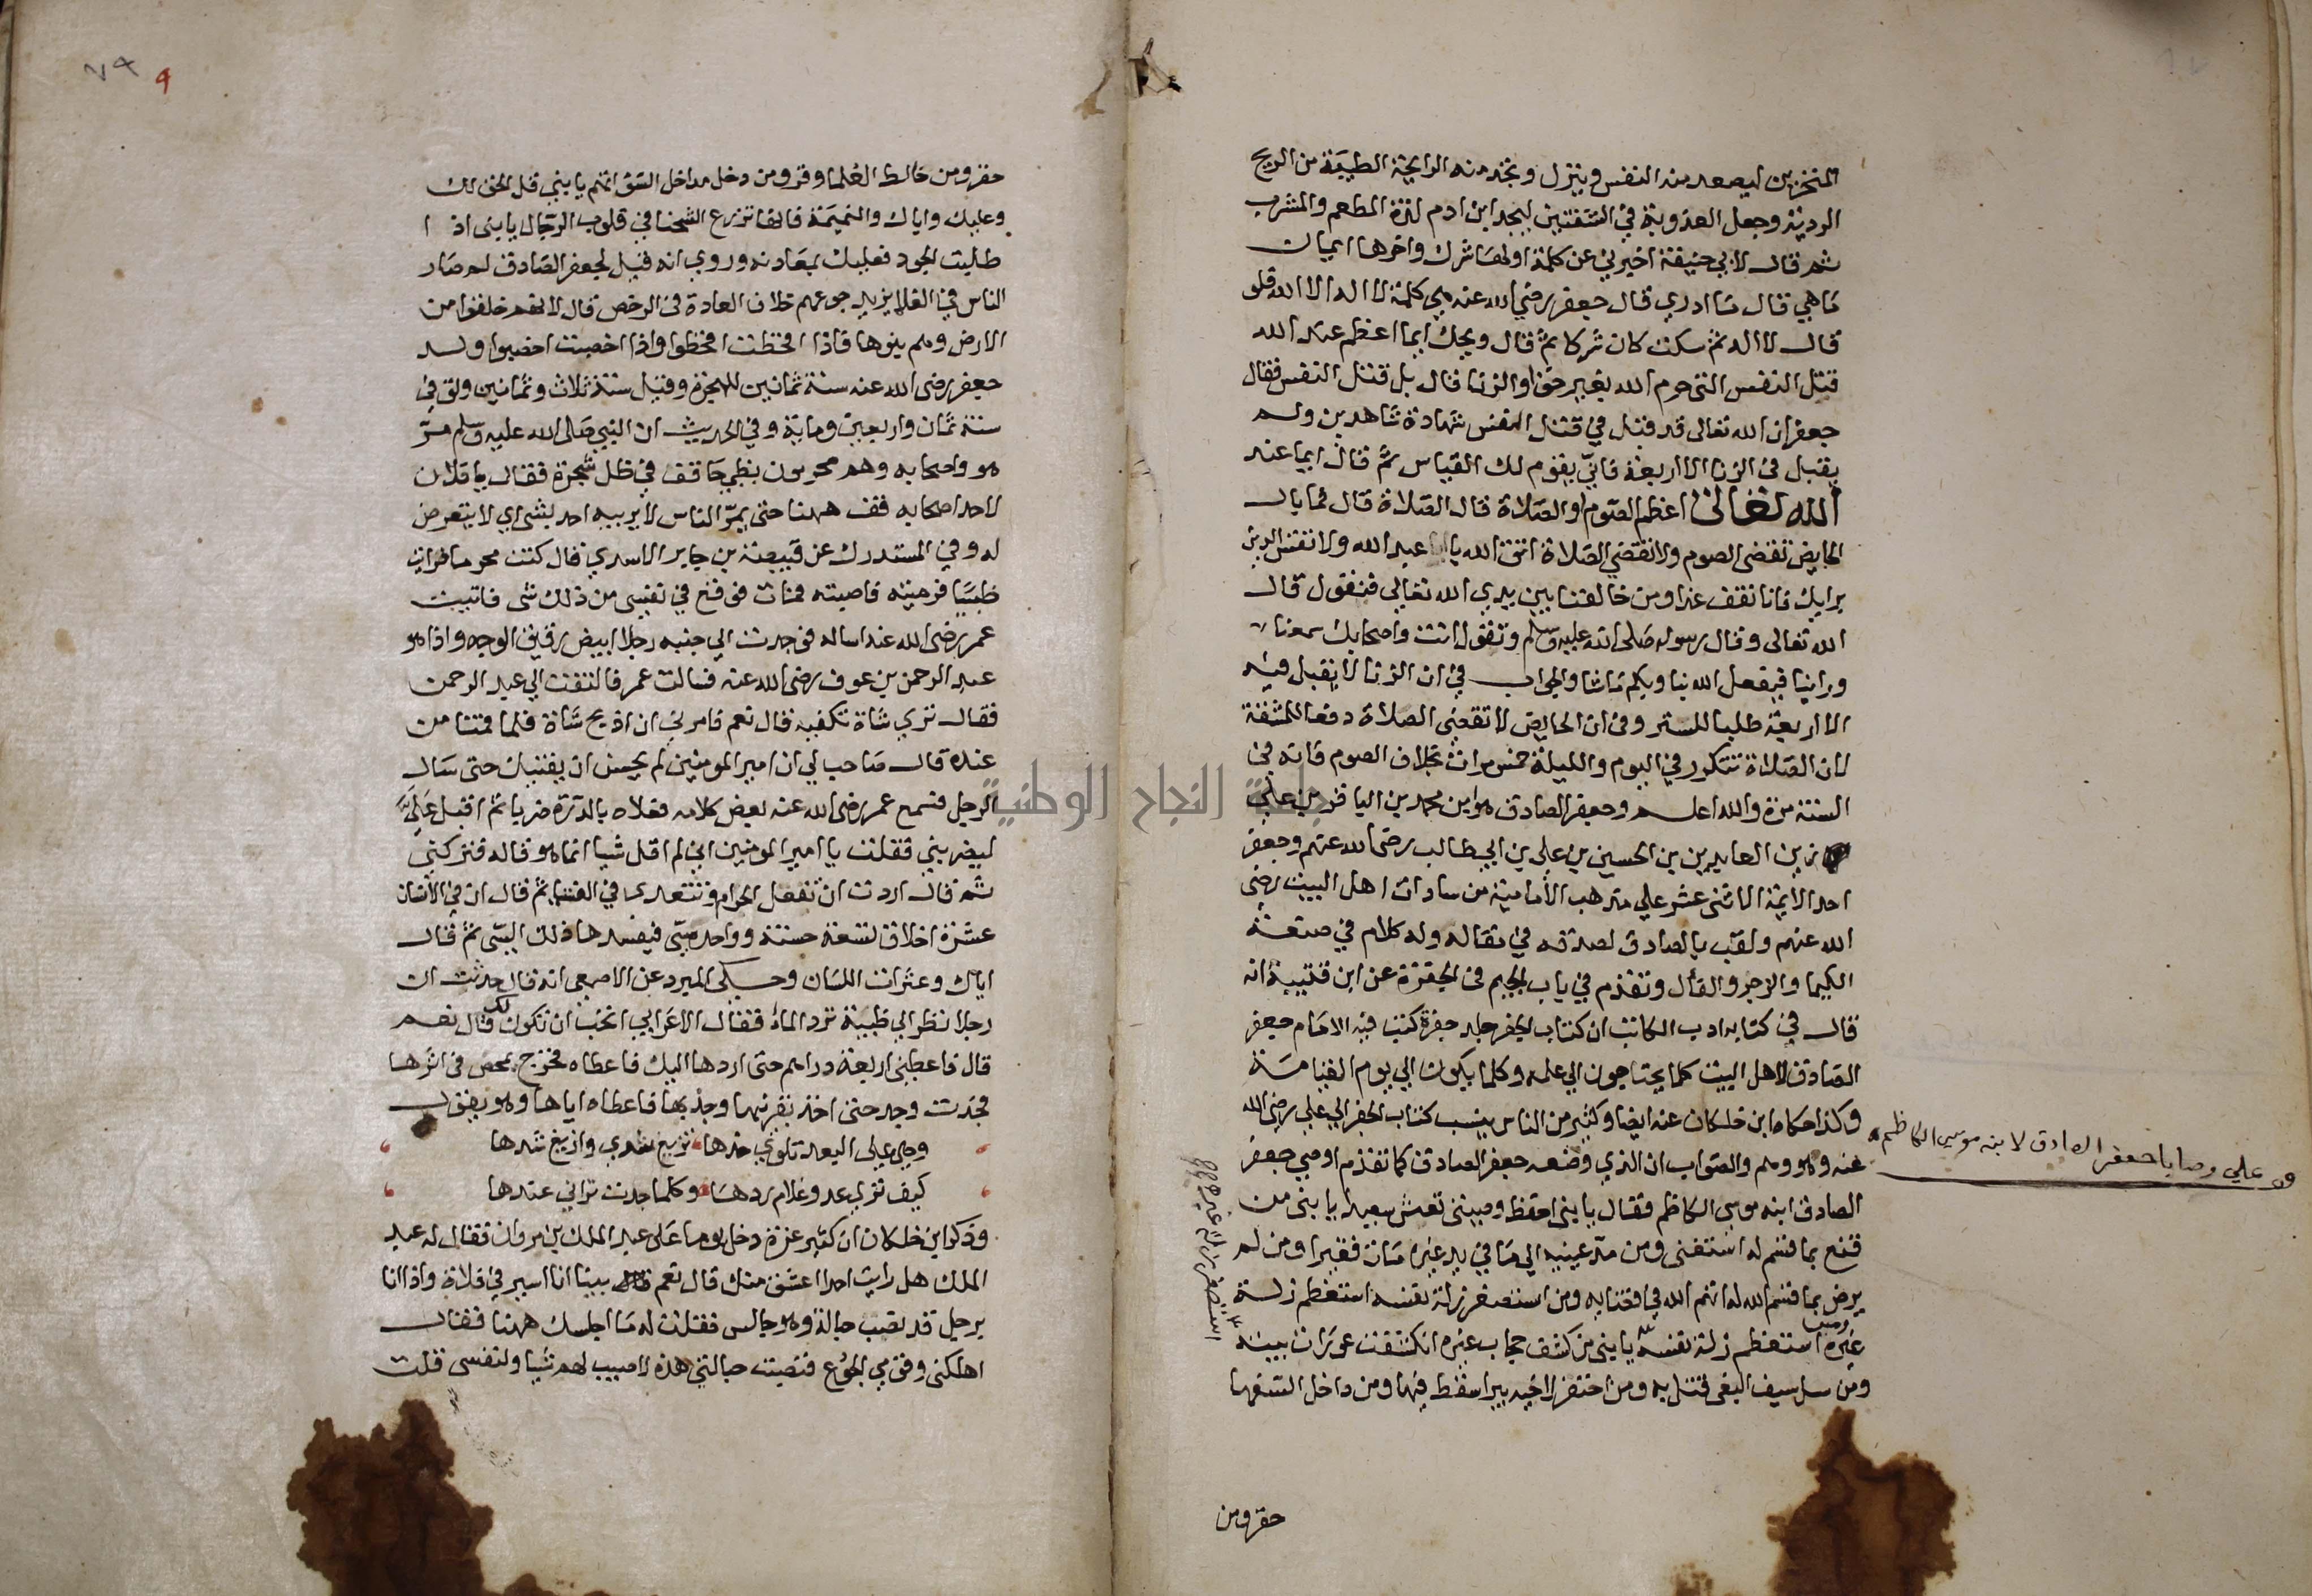 المنخرين ليصعد منه النفس وينزل ويجد منه الرايحة الطيبة من الريح
الردية وجعل العذوبة في الشفتين ليجد ابن ادم لذة المطعم والمشرب
ثم قال لابي حنيفة اخبرني عن كلمة اولها شرك واخرها ايمان
ما هي قال ما ادري قال جعفر رضي الله عنه هي كلمة لا اله الا الله فلو
قال لا اله ثم سكت كان شركا ثم قال ويحك ايما اعظم عند الله
قتل النفس التي حرم الله بغير حق او الزنا قال بل قتل النفس فقال
جعفر ان الله تعالى قد قبل في قتل النفس شهادة شاهدين ولم
يقبل في الزنا الا اربعة فانى يقوم لك القياس ثم قال ايما عند
الله تعالى اعظم الصوم او الصلاة قال الصلاة قال فما بال
الحايض تقضي الصوم ولا تقضي الصلاة اتق الله يا عبد الله ولا تقس الدين
برايك فانا نقف غدا ومن خالفنا بين يدي الله تعالى فنقول قال
الله تعالى وقال رسوله صلى الله عليه وسلم وتقول انت واصحابك سمعنا
وراينا فيفعل الله بنا وبكم ما شا والجواب في ان الزنا لا يقبل فيه
الا اربعة طلبا للستر وفي ان الحايض لا تقضي الصلاة دفعا للمشقة
لان الصلاة تتكرر في اليوم والليلة خمس مرات بخلاف الصوم فانه في
السنة مرة والله اعلم وجعفر الصادق هو ابن محمد بن الباقر بن علي
زين العابدين بن الحسين بن علي بن ابي طالب رضي الله عنهم وجعفر
احد الايمة الاثني عشر على مذهب الامامية من سادات اهل البيت رضي
الله عنهم ولقب بالصادق لصدقه في مقاله وله كلام في صنعة
الكيميا والزجر والفال وتقدم في باب الجيم في الجفرة عن ابن قتيبة انه
قال في كتابه ادب الكاتب ان كتاب الجفر جلد جفرة كتب فيه الامام جعفر
الصادق لاهل البيت كلما يحتاجون الي علمه وكلما يكون الي يوم القيامة
وكذا حكاه ابن خلكان عنه ايضا وكثير من الناس ينسب كتاب الجفر الي علي رضي الله
عنه وهو وهم والصواب ان الذي وضعه جعفر الصادق كما تقدم اوصي جعفر
الصادق ابنه موسي الكاظم فقال يا بني احفظ وصيتي تعش سعيدا يا بني من
قنع بما قسم له استغنى ومن مد عينيه الي ما في يد غيره مات فقيرا ومن لم
يرض بما قسم الله له اتهم الله في قضايه ومن استصغر زلة نفسه استعظم زلة
غيره ومن استعظم زلة نفسه يا بني من كشف حجاب غيره انكشفت عورات بيته
ومن سل سيف البغي قتل به ومن احتفر لاخيه بيرا سقط فيها ومن داخل السفها
حقر ومن
قف علي وصايا جعفر الصادق لابنه موسى الكاظم
استصغر زلة غيره
٧٩ ٩
حقر ومن خالط العلما وقر ومن دخل مداخل السو اتهم يا بني قل الحق لك
وعليك واياك والنميمة فانها تزرع الشحنا في قلوب الرجال يا بنى اذا
طلبت الجود فعليك بمعادنه وروي انه قيل لجعفر الصادق لم صار
الناس في الغلا يزيد جوعهم خلاف العادة في الرخص قال لانهم خلقوا من
الارض وهم بنوها فاذا اقحطت اقحطوا واذا اخصبت اخصبوا ولد
جعفر رضى الله عنه سنة ثمانين للهجرة وقيل سنة ثلاث وثمانين وتوفي
سنة ثمان واربعين وماية وفي الحديث ان النبي صلى الله عليه وسلم مر
هو واصحابه وهم محرمون بظبي حاقف في ظل شجرة فقال يا فلان
لاحد اصحابه قف ههنا حتى يمر الناس لا يريبه احد بشي اي لا يتعرض
له وفي المستدرك عن قبيصة بن جابر الاسدي قال كنت محرما فرايت
ظبيا فرميته فاصبته فمات فوقع في نفسي من ذلك شي فاتيت
عمر رضى الله عنه اساله فوجدت الي جنبه رجلا ابيض رقيق الوجه واذا هو
عبد الرحمن بن عوف رضي الله عنه فسالت عمر فالتفت الي عبد الرحمن
فقال تري شاة تكفيه قال نعم فامرني ان اذبح شاة فلما قمنا من
عنده قال صاحب لي ان امير المومنين لم يحسن ان يفتيك حتى سال
الرجل فسمع عمر رضى الله عنه بعض كلامه فعلاه بالدرة ضربا ثم اقبل علي
ليضربني فقلت يا امير المومنين اني لم اقل شيا انما هو قاله فتركني
ثم قال اردت ان تفعل الحرام وتتعدى في الفتيا ثم قال ان في الانسان
عشرة اخلاق تسعة حسنة وواحد سيى فيفسدها ذلك السيى ثم قال
اياك وعثرات اللسان وحكى المبرد عن الاصمعي انه قال حدثت ان
رجلا نظر الي ظبية ترد الماء فقال الاعرابي اتحب ان تكون لك قال نعم
قال فاعطني اربعة دراهم حتى اردها اليك فاعطاه فخرج يمحص في اثرها
فجدت وجد حتى اخذ بقرنيها وجذبها فاعطاه اياها وهو يقول
وهي علي البعد تلوي خدها تريغ شدي واريغ شدها
كيف تري عدو غلام ردها وكلما جدت تراني عندها
وذكر ابن خلكان ان كثير عزة دخل يوما على عبد الملك بن مروان فقال له عبد
الملك هل رايت احدا اعشق منك قال نعم بينا انا اسير في فلاة واذا انا
برجل قد نصب حبالة وهو جالس فقلت له ما اجلسك ههنا فقال
اهلكني وقومي الجوع فنصبت حبالتي هذه لاصيب لهم شيا ولنفسى قلت
جامعة النجاح الوطنية